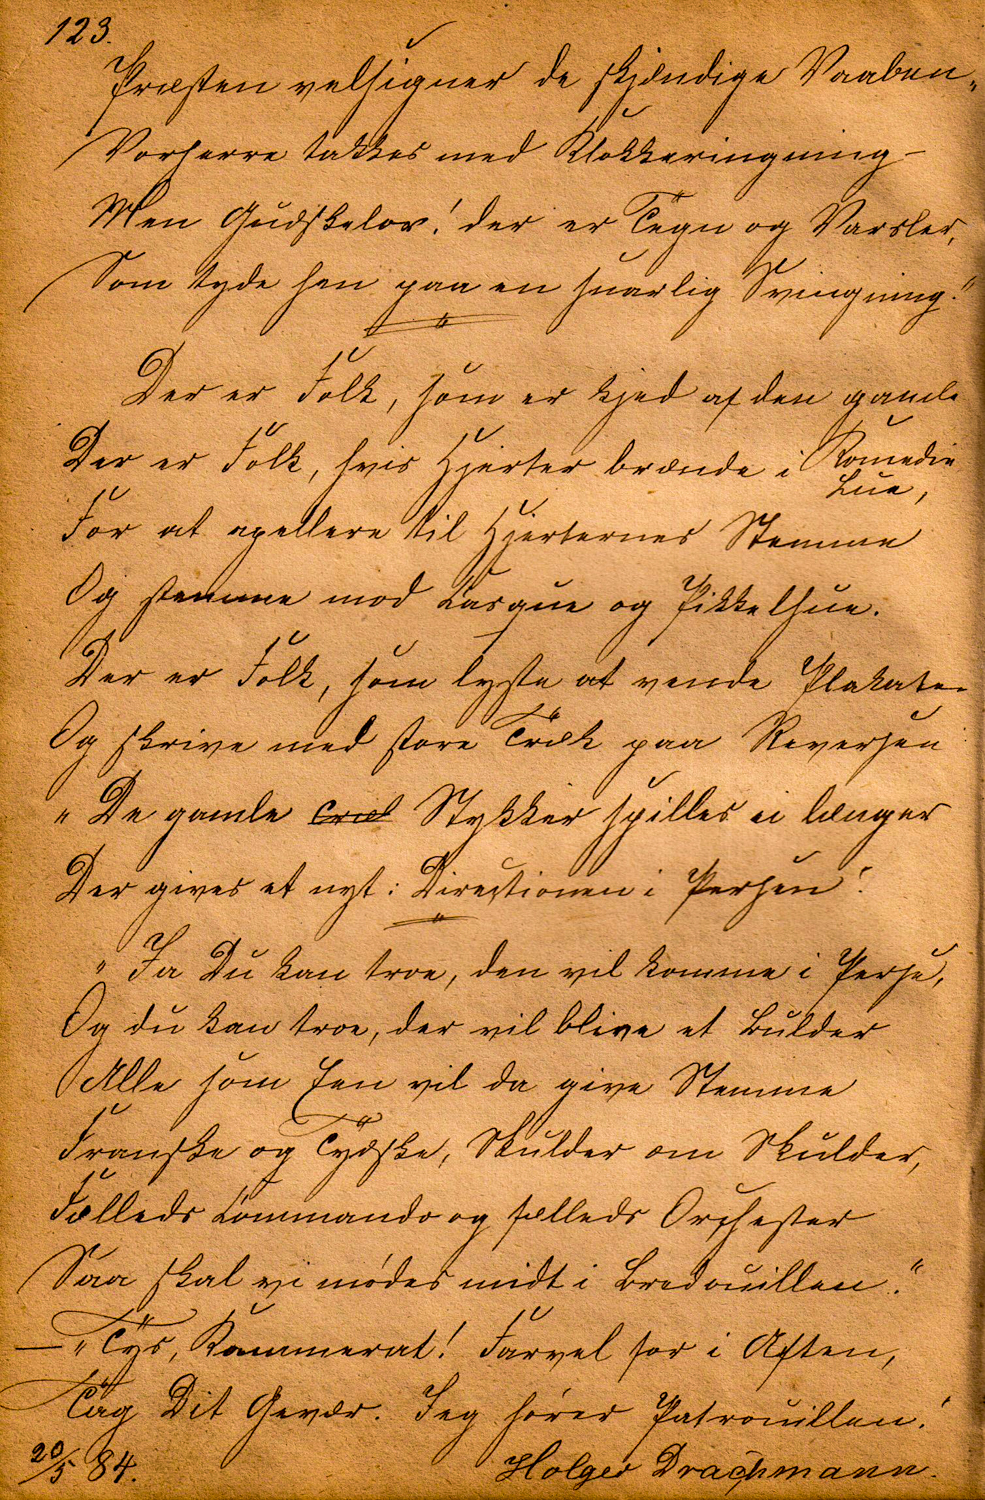 123.
Præsten velsigner de skjændige Vaaben„
Vorherre takkes med Klokkeringning –
Men Gudskelov! der er Tegn og Varsler,
Som tyde hen paa en snarlig Svingning."
Der er Folk, som er kjed af den gamle
Komedie
Der er Folk, hvis Hjerter brænde i Lue,
For at apellere til Hjerternes Stemme
Og stemme mod Casque og Pikkelhue.
Der er Folk, som lyste at vende Plakaten
Og skrive med store Træk paa Reversen
"De gamle Stykker spilles ei længer
Der gives et nyt: Directionen i Persen!
"Ja Du kan troe, den vil komme i Perse,
Og du kan troe, der vil blive et Bulder
Alle som Een vil da give Stemme
Franske og Tydske, Skulder om Skulder,
Fælleds Commando og fælleds Orchester
Saa skal vi mødes midt i Bredouillen."
— "Tys, Kammerat! Farvel for i Aften,
Tag Dit Gevær. Jeg hører Patrouillen!
20/5 84. Holger Drachmann.